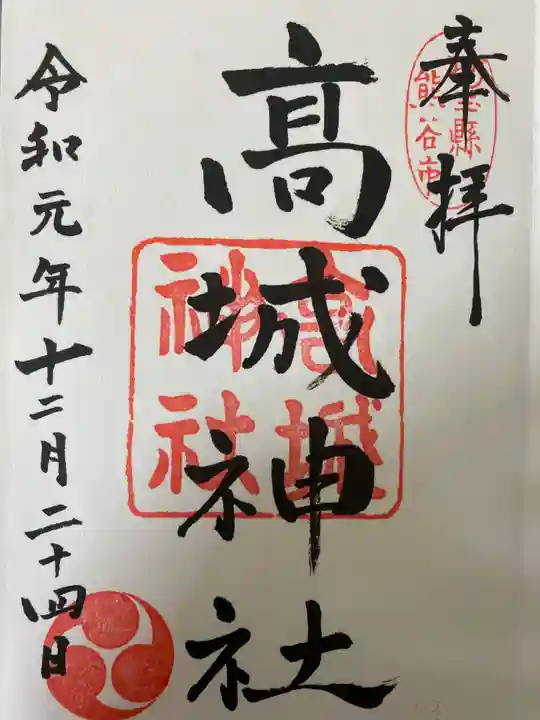 奉拝
埼玉縣
熊谷市
高城神社
高城
神社
令和元年十二月二十四日